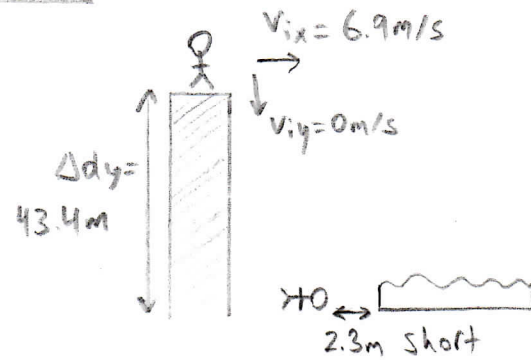 Vix = 6.9m/s
Viy = 0m/s
Δdy =
43.4m
2.3m short